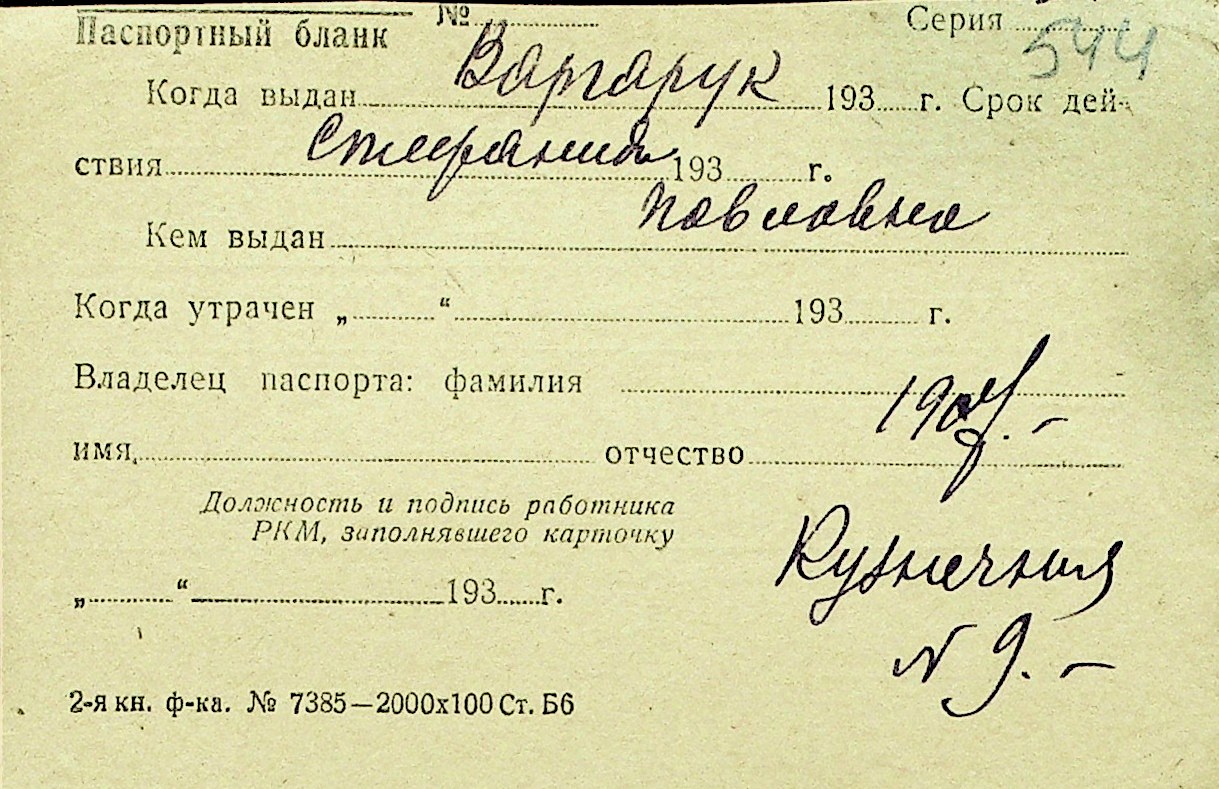 Паспортный бланк № Серия 544
Когда выдан Варгарук 193 г. Срок дей-
ствия Стефания 193 г.
Кем выдан Павловна
Когда утрачен „ “ 193 г.
Владелец паспорта: фамилия
имя, отчество
Должность и подпись работника
РКМ, заполнявшего карточку
Кузнечная
„ “ 193 г.
N 9. —
2-я кн. ф-ка. № 7385—2000х100 Ст. Б6